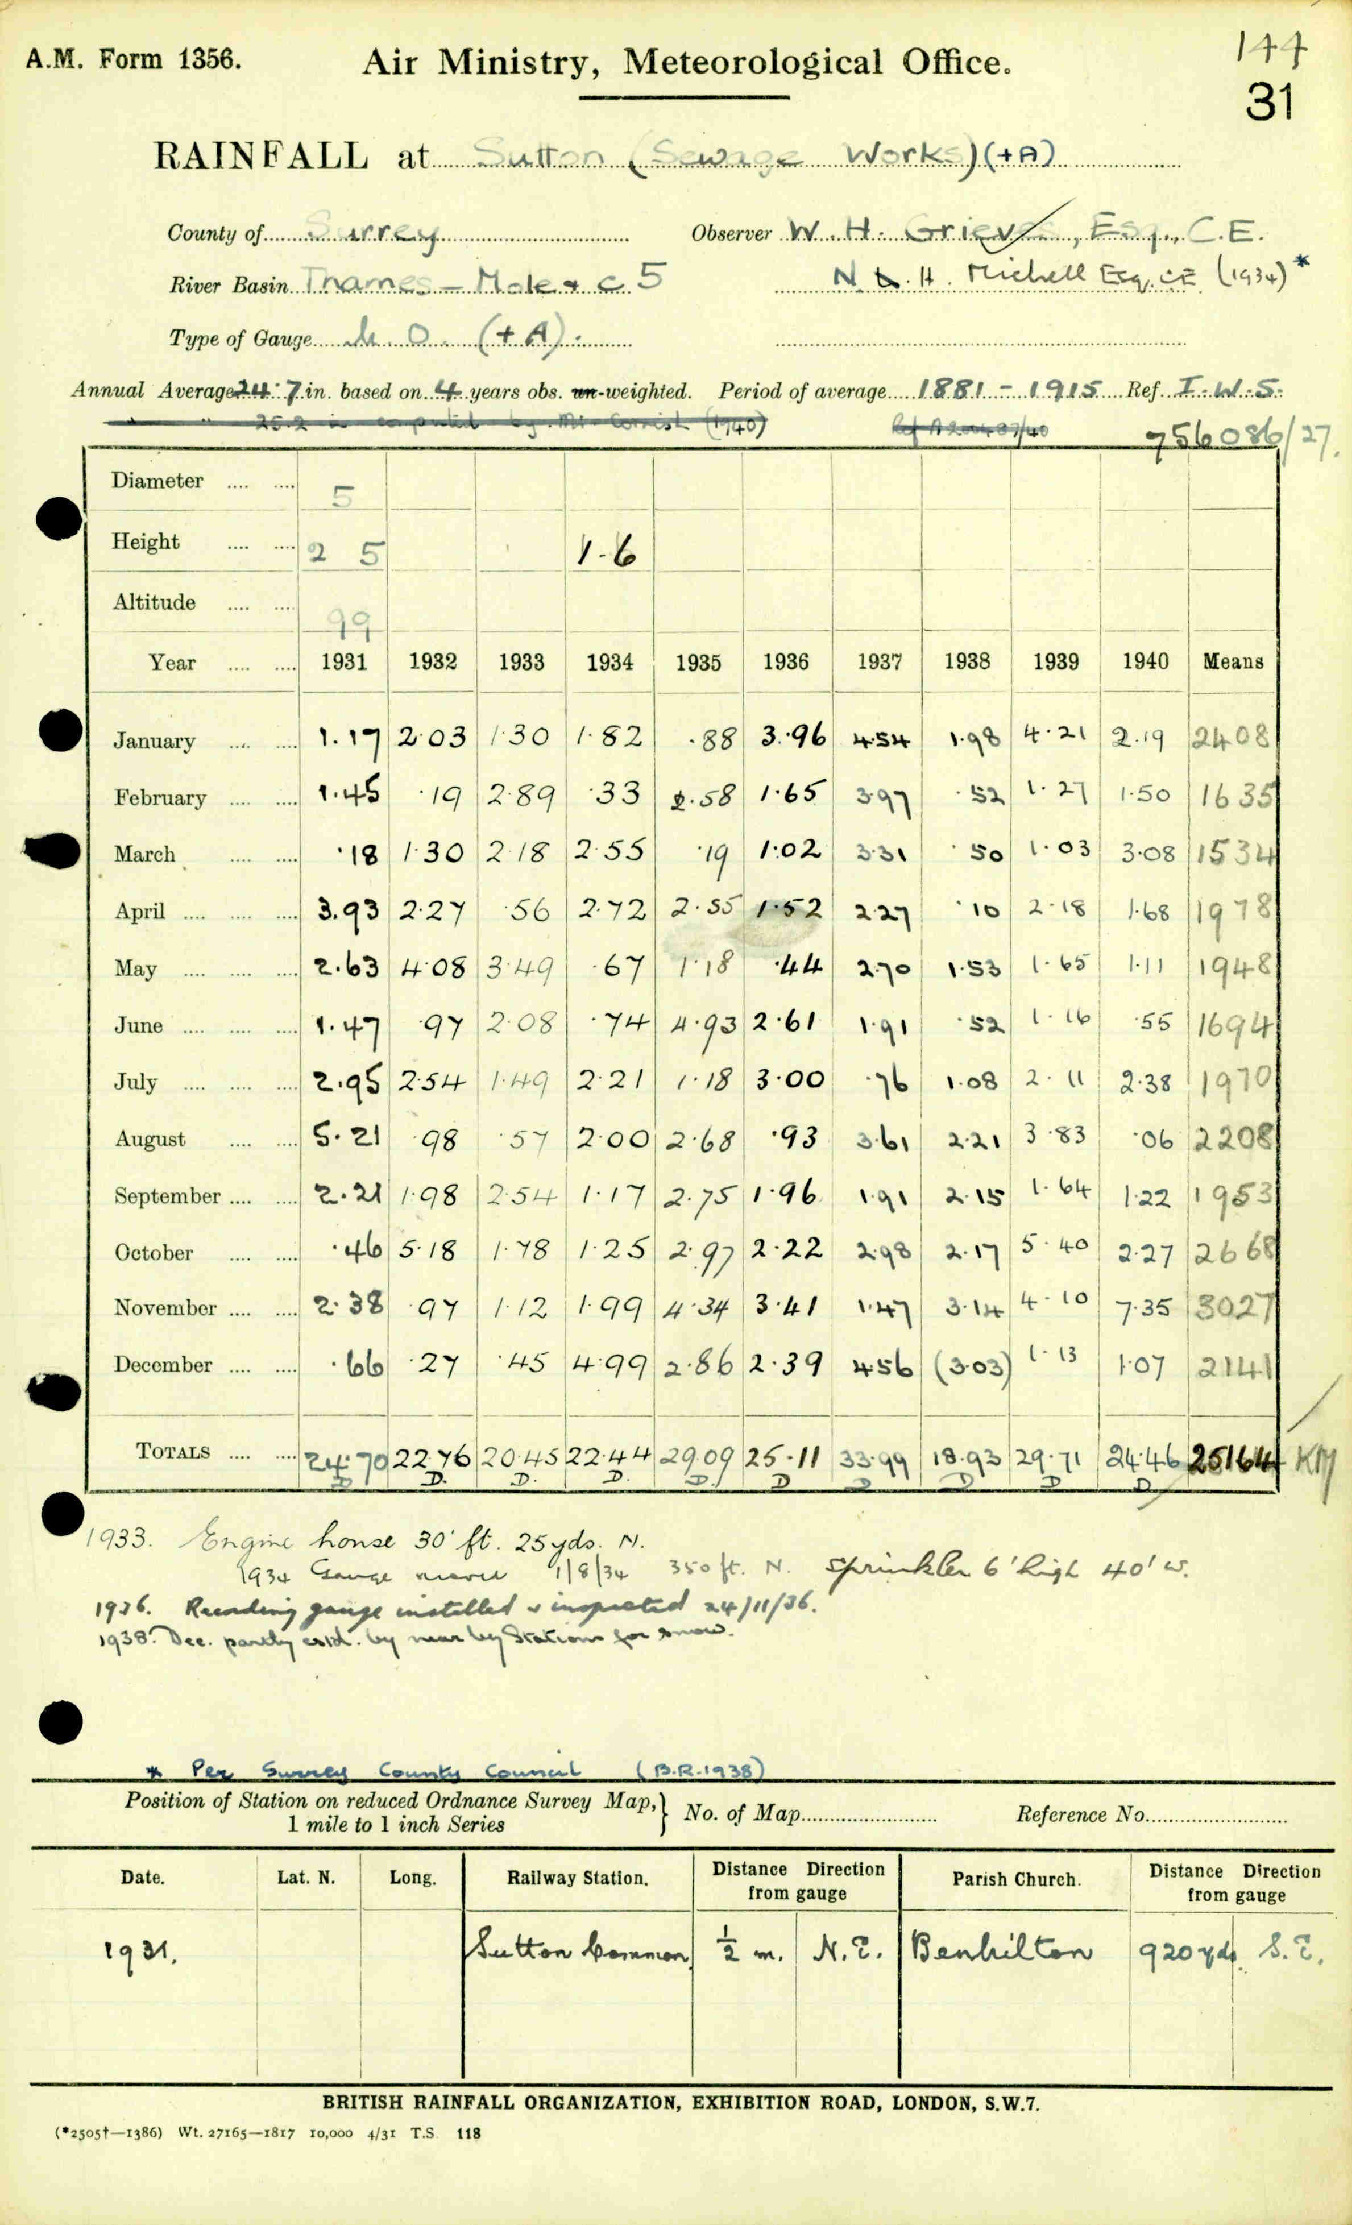 A.M. Form 1356.
Air Ministry, Meteorological Office.
144
31
RAINFALL at Sutton (Sewage Works) (+A)
County of Surrey Observer W. H. Grieves, Esq., C.E.
River Basin Thames – Mole & c 5 N. H. Michell Esq, C.E (1934) *
Type of Gauge M. O. (+ A).
Annual Average 24.7 in. based on 4 years obs. un-weighted. Period of average 1881 – 1915 Ref. I.W.S.
" " 25.2 in computed by Mr Cornish (1940)
756086/27.
Diameter .... .... 5
Height .... .... 2 5 1-6
Altitude .... .... 99
Year .... .... 1931 1932 1933 1934 1935 1936 1937 1938 1939 1940 Means
January .... .... 1.17 2.03 1.30 1.82 .88 3.96 4.54 1.98 4.21 2.19 2408
February .... .... 1.45 .19 2.89 .33 2.58 1.65 3.97 .52 1.27 1.50 1635
March .... .... .18 1.30 2.18 2.55 .19 1.02 3.31 .50 1.03 3.08 1534
April .... .... .... 3.93 2.27 .56 2.72 2.55 1.52 2.27 .10 2.18 1.68 1978
May .... .... .... 2.63 4.08 3.49 .67 1.18 .44 2.70 1.53 1.65 1.11 1948
June .... .... .... 1.47 .97 2.08 .74 4.93 2.61 1.91 .52 1.16 .55 1694
July .... .... .... 2.95 2.54 1.49 2.21 1.18 3.00 .76 1.08 2.11 2.38 1970
August .... .... 5.21 .98 .57 2.00 2.68 .93 3.61 2.21 3.83 .06 2208
September .... .... 2.21 1.98 2.54 1.17 2.75 1.96 1.91 2.15 1.64 1.22 1953
October .... .... .46 5.18 1.78 1.25 2.97 2.22 2.98 2.17 5.40 2.27 2668
November .... .... 2.38 .97 1.12 1.99 4.34 3.41 1.47 3.14 4.10 7.35 3027
December .... .... .66 .27 .45 4.99 2.86 2.39 4.56 (3.03) 1.13 1.07 2141
TOTALS .... .... 24.70 22.76 20.45 22.44 29.09 25.11 33.99 18.93 29.71 24.46 25164 KM
D D. D. D. D. D D D D D
1933. Engine house 30' ft. 25yds. N.
1934 Gauge moved 1/8/34 350 ft. N. Sprinkler 6' high 40' W.
1936. Recording gauge installed & inspected 24/11/36.
1938. Dec. partly estd. by near by Stations for snow.
* Per Surrey County Council (B.R.1938)
Position of Station on reduced Ordnance Survey Map,} No. of Map Reference No.
1 mile to 1 inch Series
Date. Lat. N. Long. Railway Station. Distance Direction from gauge Parish Church. Distance Direction from gauge
1931. Sutton Common 1/2 m. N.E. Benhilton 920 yds. S.E.
BRITISH RAINFALL ORGANIZATION, EXHIBITION ROAD, LONDON, S.W.7.
(*2505†—1386) Wt. 27165—1817 10,000 4/31 T.S. 118